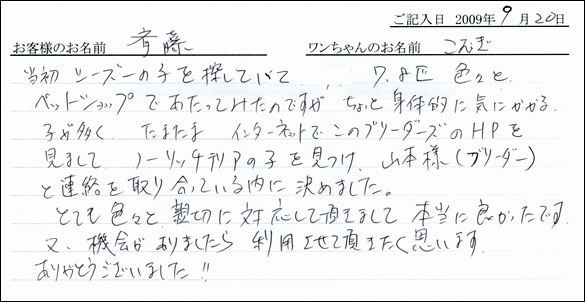 ご記入日 2009年 9月 20日
お客様のお名前 斉藤 ワンちゃんのお名前 こむぎ
当初 シーズーの子を探していて、7、8匹 色々と
ペットショップであたってみたのですが ちょっと身体的に気にかかる
子が多く たまたま インターネットでこのブリーダーズのHPを
見まして ノーリッチテリアの子を見つけ、山本様(ブリーダー)
と連絡を取り合っている内に決めました。
とても色々と親切に対応して頂きまして 本当に良かったです
又、機会がありましたら 利用させて頂きたく思います
ありがとうございました!!